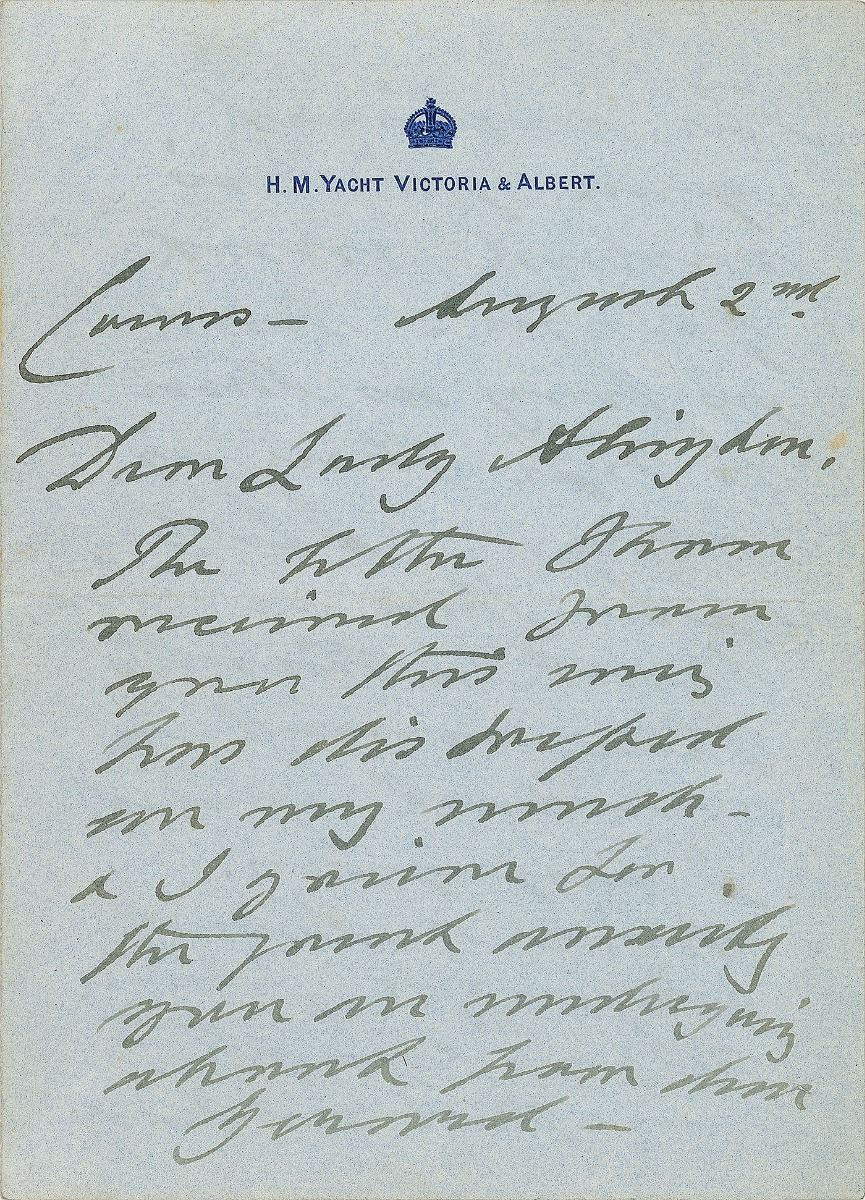 H. M. YACHT VICTORIA & ALBERT.
Cowes – August 2nd.
Dear Lady Abingdon,
The letter I have
received from
you this
has distressed
me very much –
& I grieve for
the great anxiety
you are undergoing
about poor dear
–